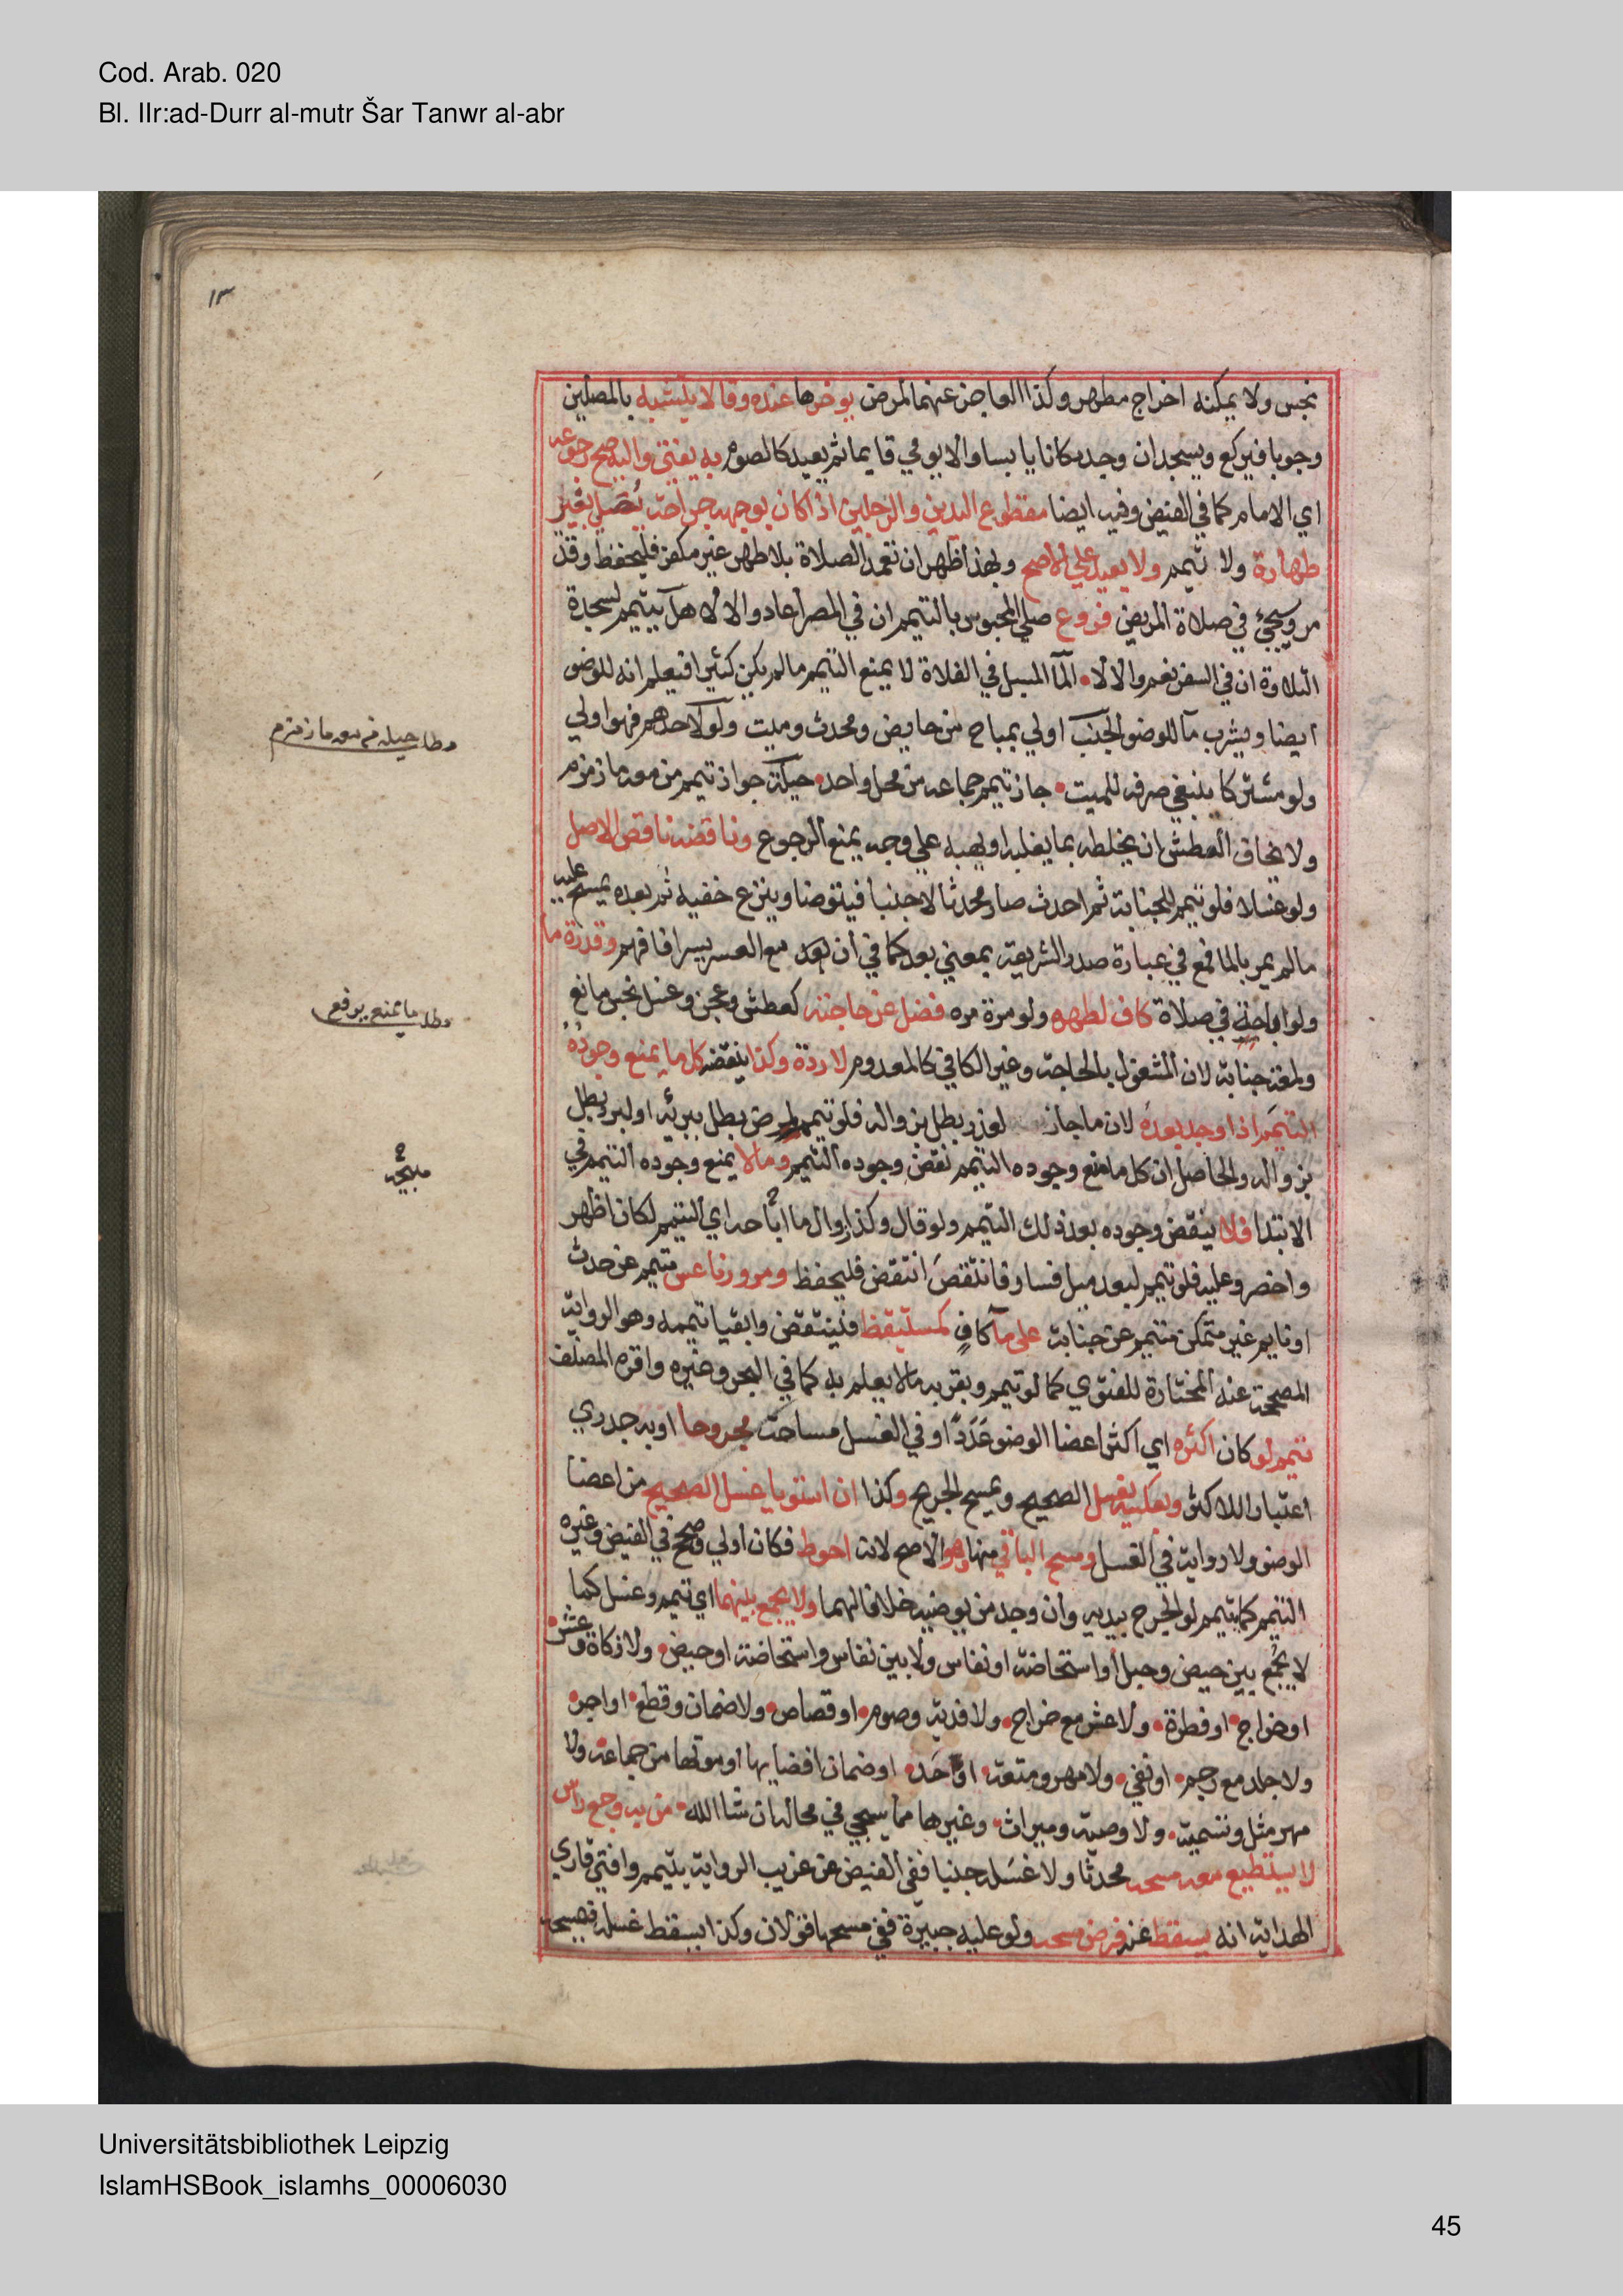 Cod. Arab. 020
Bl. IIr:ad-Durr al-mutr Šar Tanwr al-abr
١٣
نجس ولا يمكنه اخراج مطهر وكذا العاجز عنهما لمرض يوخرها عنده وقالا يتشبه بالمصلين
وجوبا فيركع ويسجد ان وجد مكانا يابسا والا يومي قايما ثم يعيد كالصوم به يفتى واليه صح رجوعه
اي الامام كما في الفيض وفيه ايضا مقطوع اليدين والرجلين اذا كان بوجهه جراحة يصلي بغير
طهارة ولا تيمم ولا يعيد على الاصح وبهذا ظهر ان تعمد الصلاة بلا طهر غير مكفر فليحفظ وقد
مر وسيجئ في صلاة المريض فروع صلي المحبوس بالتيمم ان في المصر اعاد والا لا هل يتيمم لسجدة
التلاوة ان في السفر نعم والا لا الما المسبل في الفلاة لا يمنع التيمم ما لم يكن كثيرا فيعلم انه للوضو
ايضا ويشرب ما للوضو الجنب اولي بمباح من حايض ومحدث وميت ولو لاحدهم فهو اولي
ولو مشتركا ينبغي صرفه للميت جاز تيمم جماعه من محل واحد حيلة جواز تيمم من معه ماز مزم
ولا يخاف العطش ان يخلطه بما يغلبه او يهبه علي وجه يمنع الرجوع وناقضه ناقض الاصل
ولو غسلا فلو تيمم للجنابة ثم احدث صار محدثا لا جنبا فيتوضا وينزع خفيه ثم بعده يمسح عليه
ما لم يمر بالما فمع في عبارة صدر الشريعة بمعني بعد كما في ان بعد مع العسر يسرا فافهم وقدرة ما
ولو اباحة في صلاة كاف لطهره ولو مرة مره فضل عن حاجته كعطش وعجن وغسل نجس مانع
ولمعة جنابة لان المشغول بالحاجة وغير الكافي كالمعدوم لا ردة وكذا ينقضه كل ما يمنع وجوده
التيمم اذا وجد بعده لان ما جاز لعذر بطل بزواله فلو تيمم لمرض بطل ببرئه او لبرد بطل
بزواله والحاصل ان كل ما منع وجوده التيمم نقض وجوده التيمم وما لا يمنع وجوده التيمم في
الابتدا فلا ينقض وجوده بعد ذلك التيمم ولو قال وكذا زوال ما اباحه اي التيمم لكان اظهر
واخصر وعليه فلو تيمم لبعد ميل فسار فانتقص انتقض فليحفظ ومرور ناعس متيمم عن حدث
او نايم غير متمكن متيمم عن جنابة علي ما كاف كمستيقظ فينتقض وابقيا تيممه وهو الرواية
المصححة عنه المختارة للفتوي كما لو تيمم وبقربه ما لا يعلم به كما في البحر وغيره واقره المصنف
تيمم لو كان اكثره اي اكثر اعضا الوضو عددا او في الغسل مساحة مجروحا او به جدري
اعتبارا للاكثر وبعكسه يغسل الصحيح ويمسح الجريح وكذا ان استويا غسل الصحيح من اعضا
الوضو ولا رواية في الغسل ومسح الباقي منها وهو الاصح لانه احوط فكان اولي وصحح في الفيض وغيره
التيمم كما يتيمم لو الجرح بيديه وان وجد من يوضيه خلافا لهما ولا يجمع بينهما اي تيمم وغسل كما
لا يجمع بين حيض وحبل او استحاضة او نفاس ولا بين نفاس واستحاضة او حيض ولا زكاة وعشر
او خراج او فطرة ولا عشر مع خراج ولا فدية وصوم او قصاص ولا ضمان وقطع او اجر
ولا جلد مع رجم او نفي ولا مهر ومتعة او حد او ضمان افضايها او موتها من جماعه ولا
مهر مثل وتسمية ولا وصية وميراث وغيرها مما سيجي في محاله ان شا الله من به وجع راس
لا يستطيع معه مسحه محدثا ولا غسله جنبا ففي الفيض عن غريب الرواية يتيمم وافتي قاري
الهداية انه يسقط عنه فرض مسحه ولو عليه جبيرة ففي مسحها قولان وكذا يسقط غسله فيمسحه
مطلب حيلة من معه ماز مزم
مطلب ما يمنع يرفع
Universitätsbibliothek Leipzig
IslamHSBook_islamhs_00006030
45